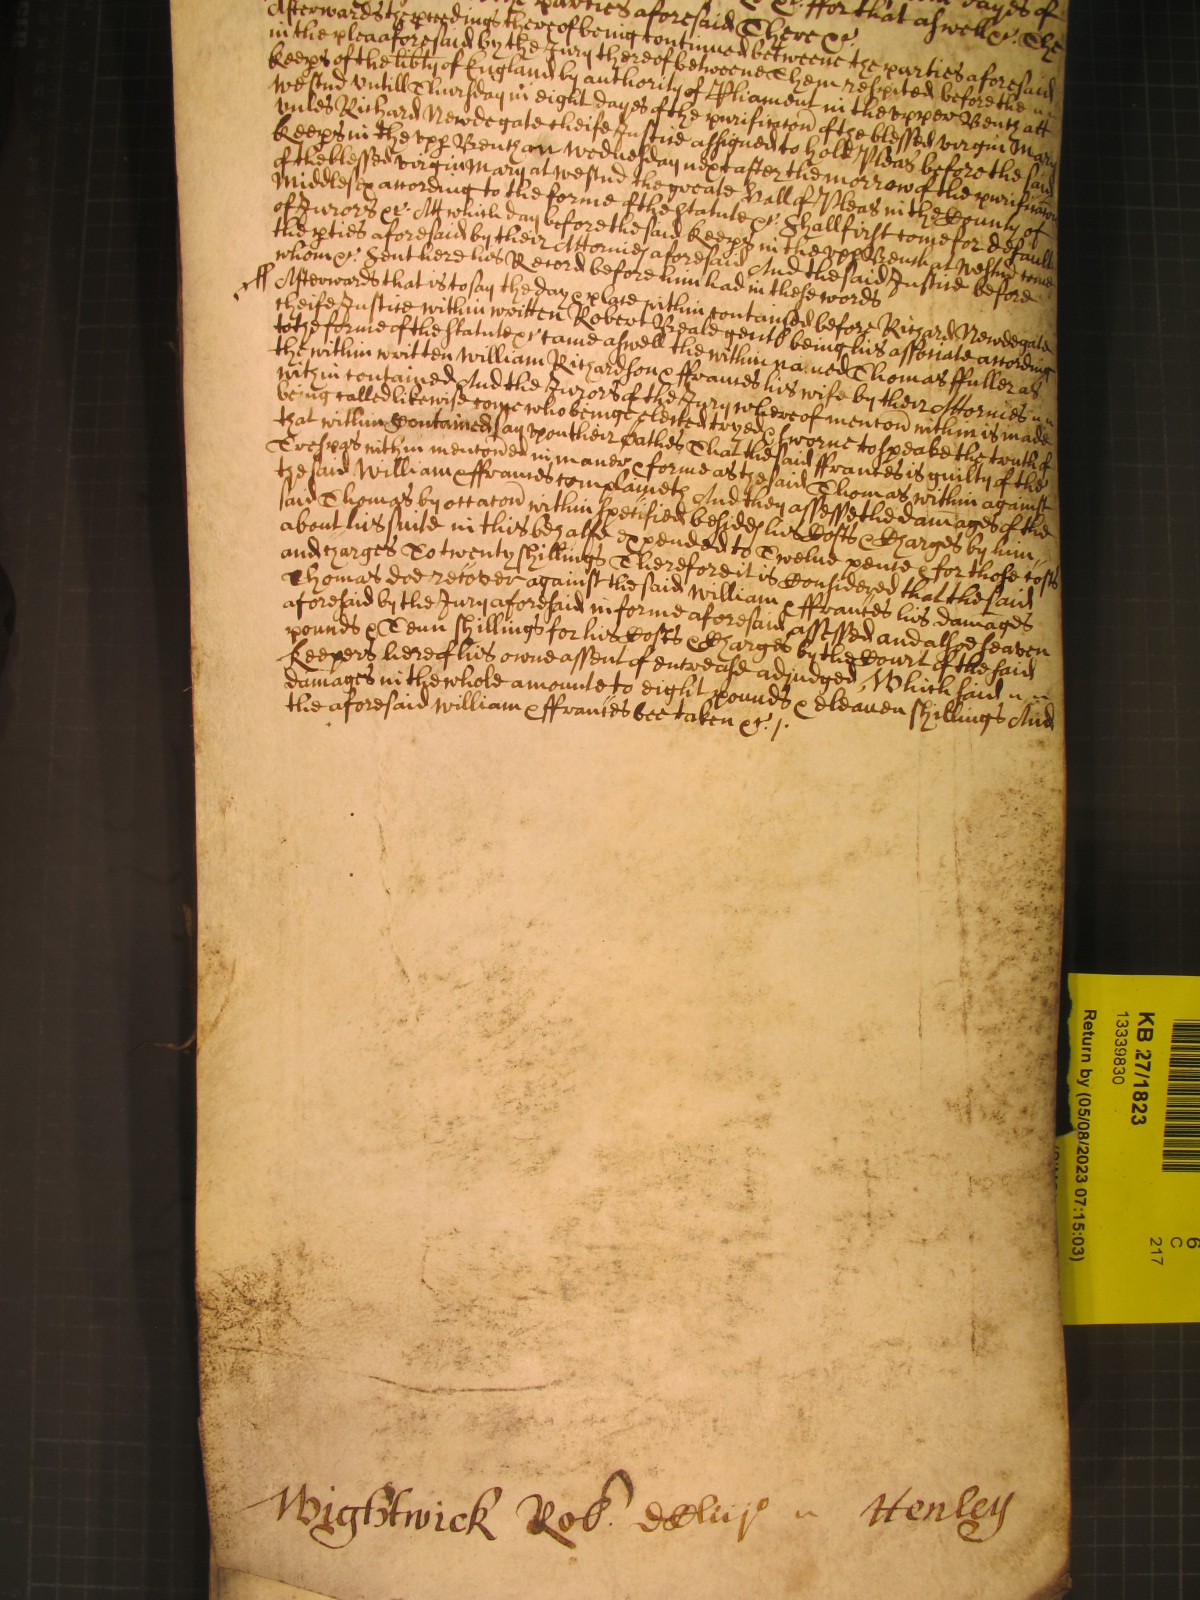 the parties aforesaid There &c. ffor that aswell &c. The
Afterwards the pceedings thereof being continued betweene the parties aforesaid
in the plea aforesaid by the Jury thereof betweene them respited before the
Keepers of the libty of England by authority of Pliament in the upper Bench att
Westmr Untill Thursday in eight dayes of the purificacon of the blessed virgin Mary
unles Richard Newdegate cheife Justice assigned to hold Pleas before the said
Keepers in the upper Bench on Wednesday next after the morrow of the purificacon
of the blessed virgin Mary at Westmr the greate Hall of Pleas in the County of
Middlesex according to the forme of the Statute &c. Shall first come for default
of Jurors &c. Att which day before the said Keepers in the upp Bench at Westmr come
the pties aforesaid by their Attornies aforesaid And the said Justice before
whom &c. Sent here his Record before him had in these words
Afterwards that is to say the day & place within contained before Richard Newdegate
cheife Justice within written Robert Beale gent being his associate according
to the forme of the Statute &c. came aswell the within named Thomas ffuller as
the within written William Richardson & ffrances his wife by their Attornies
within contained And the Jurors of the Jury whereof mencon within is made
being called likewise come who beinge elected tryed & sworne to speake the truth of
that within Contained say upon their Oathes That the said ffrances is guilty of the
Trespas within menconed in maner & forme as the said Thomas within against
the said William & ffrances complaineth And they assesse the damages of the
said Thomas by occacon within specified besides his Costs & Charges by him
about his suite in this behalfe expended to Twelve pence & for those costs
and charges To twenty shillings Therefore it is Considered that the said
Thomas doe recover against the said William & ffrances his damages
aforesaid by the Jury aforesaid in forme aforesaid assessed and alsoe seaven
pounds & Tenn shillings for his Costs & Charges by the Court of the said
Keepers here of his owne assent of encrease adjudged Which said
damages in the whole amounte to eight pounds & eleaven shillings And
the aforesaid William & ffrances bee taken &c.
Wightwick Rob. Henley
KB 27/1823
13339830
Return by (05/08/2023 07:15:03)
6
C
217